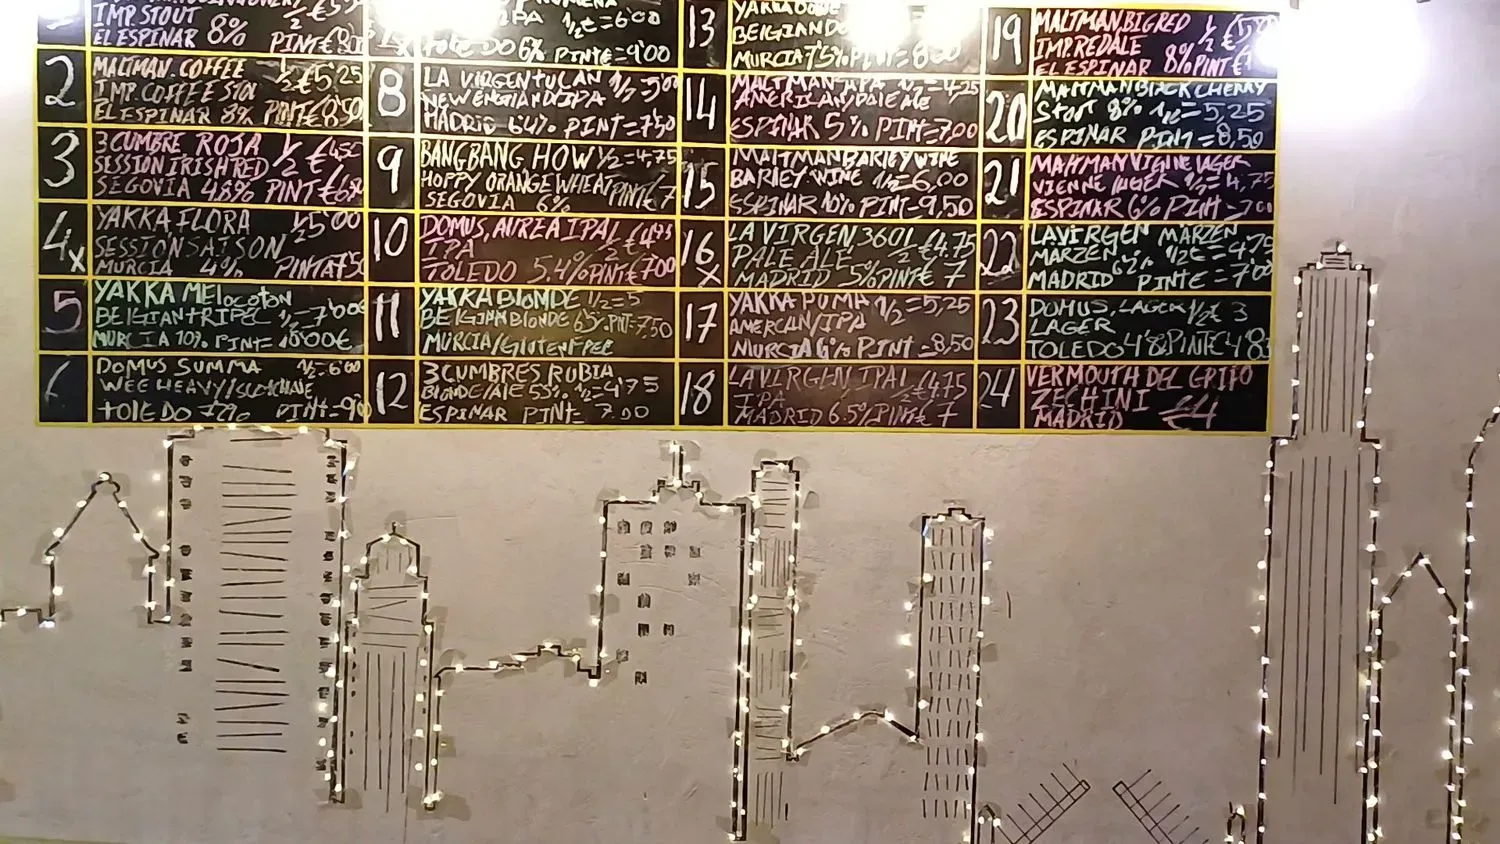 IMP.STOUT
EL ESPINAR 8% PINT
2
MALTMAN.COFFEE ½ €5,25
IMP.COFFEE STOU
EL ESPINAR 8% PINT €8,50
3
3 CUMBRE ROJA ½ €4,50
SESSION IRISH RED
SEGOVIA 4.8% PINT
4x
YAKKA FLORA ½ 5'00
SESSION SAISON
MURCIA 4% PINTA 7'50
5
YAKKA MELOCOTON
BELGIAN TRIPEL ½=7'00€
MURCIA 10% PINT=10'00€
6
DOMUS SUMMA ½=6'00
WEE HEAVY/SCOTCH ALE
TOLEDO PINT=9'0
½€=6'00
TOLEDO 6% PINTE=9'00
8
LA VIRGEN TUCAN ½ 5'00
NEW ENGLAND IPA
MADRID 6'4% PINT=7'50
9
BANG BANG HOW ½=4,75
HOPPY ORANGE WHEAT PINT € 7
SEGOVIA 6%
10
DOMUS, AUREA IPA ½ €4,75
IPA
TOLEDO 5.4% PINT €7,00
11
YAKKA BLONDE ½=5
BELGIAN BLONDE PINT=7,50
MURCIA/GLUTEN FREE
12
3 CUMBRES RUBIA
BLONDE ALE 5'5% ½=4'75
ESPINAR PINT= 7.00
13
YAKKA
BELGIAN
MURCIA 7'5% PINT=
14
MALTMAN APA ½=4,25
AMERICAN PALE ALE
ESPINAR 5% PINT=7,00
15
MALTMAN BARLEY WINE
BARLEY WINE ½=6,00
ESPINAR 10% PINT=9,50
16x
LA VIRGEN 360 ½ €4.75
PALE ALE
MADRID 5% PINT € 7
17
YAKKA PUMA ½=5,25
AMERCAN/IPA
MURCIA 6% PINT=8,50
18
LA VIRGEN IPA ½ €4.75
IPA
MADRID 6.5%/PINT € 7
19
MALTMAN BIG RED ½
IMP.RED ALE
EL ESPINAR 8% PINT €
20
MALTMAN BLACK CHERRY
STOUT 8% ½=5,25
ESPINAR PINT=8,50
21
MALTMAN VIENNE LAGER
VIENNE LAGER ½=4,75
ESPINAR 6% PINT=7'00
22
LA VIRGEN MARZEN
MARZEN ½€=4,75
MADRID PINTE=7'00
23
DOMUS, LAGER ½€ 3
LAGER
TOLEDO 4'8% PINT €
24
VERMOUTH DEL GRIFO
ZECHINI
MADRID €4